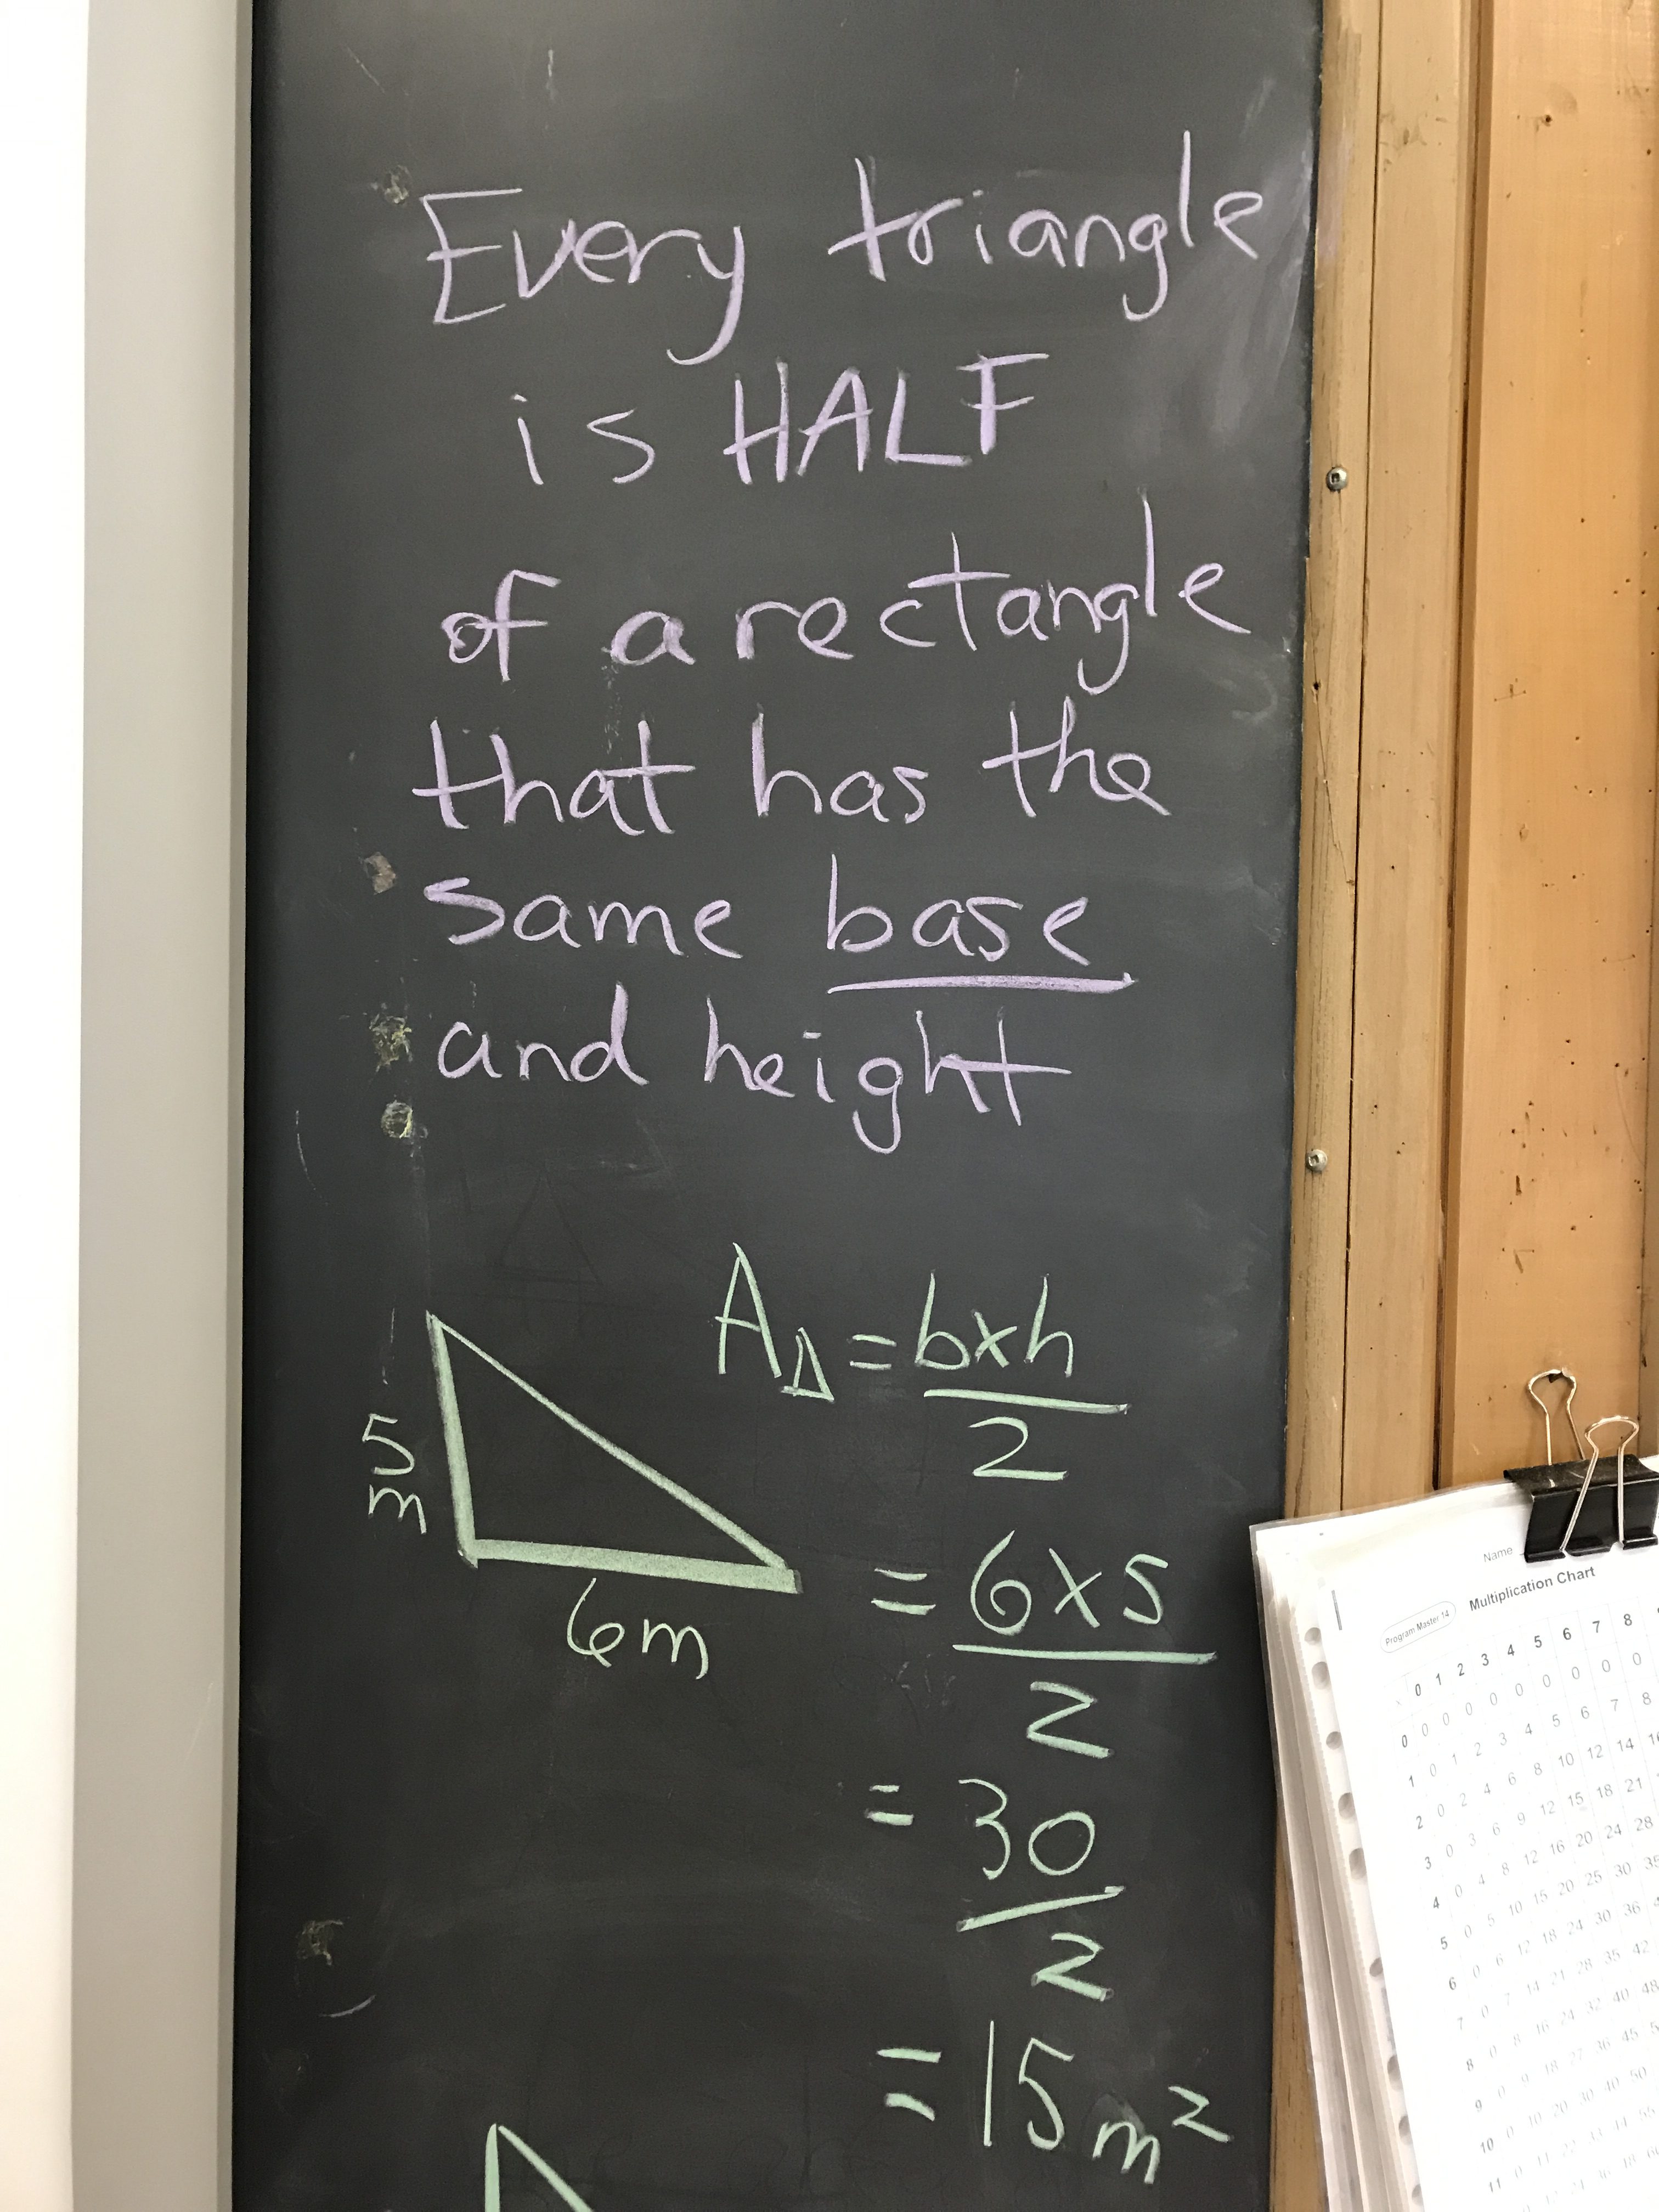 Every triangle
is HALF
of a rectangle
that has the
same base
and height
A△ = b×h
2
5
m
6m
= 6×5
2
= 30
2
= 15m²
Name
Program Master 14
Multiplication Chart
0 1 2 3 4 5 6 7 8
0 0 0 0 0 0 0 0 0 0
1 0 1 2 3 4 5 6 7 8
2 0 2 4 6 8 10 12 14
3 0 3 6 9 12 15 18 21
4 0 4 8 12 16 20 24 28
5 0 5 10 15 20 25 30
6 0 6 12 18 24 30 36
7 0 7 14 21 28 35 42
8 0 8 16 24 32 40 48
9 0 9 18 27 36 45
10 0 10 20 30 40 50
11 0 11 22